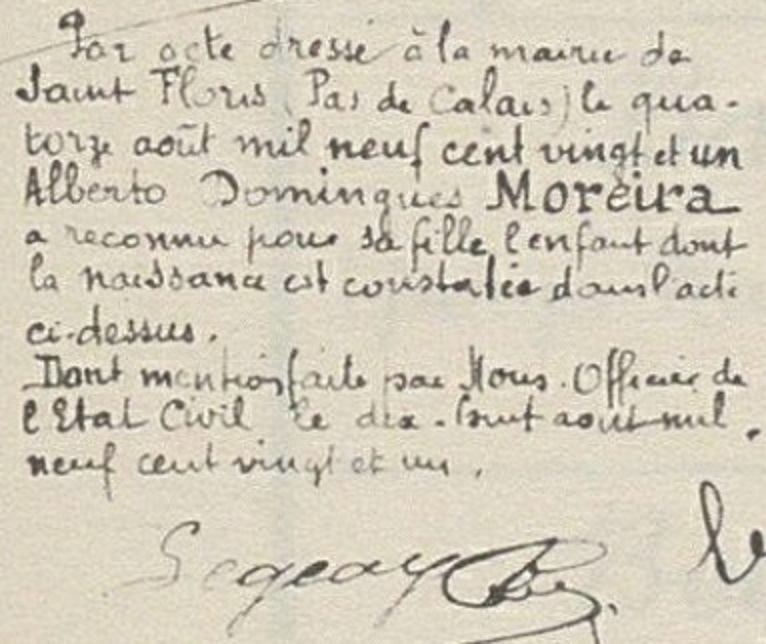 Par acte dressé à la mairie de
Saint Floris (Pas de Calais) le qua-
torze août mil neuf cent vingt et un
Alberto Domingues Moreira
a reconnu pour sa fille l'enfant dont
la naissance est constatée dans l'acte
ci-dessus.
Dont mention faite par Nous. Officier de
l'Etat Civil le dix-huit août mil
neuf cent vingt et un.